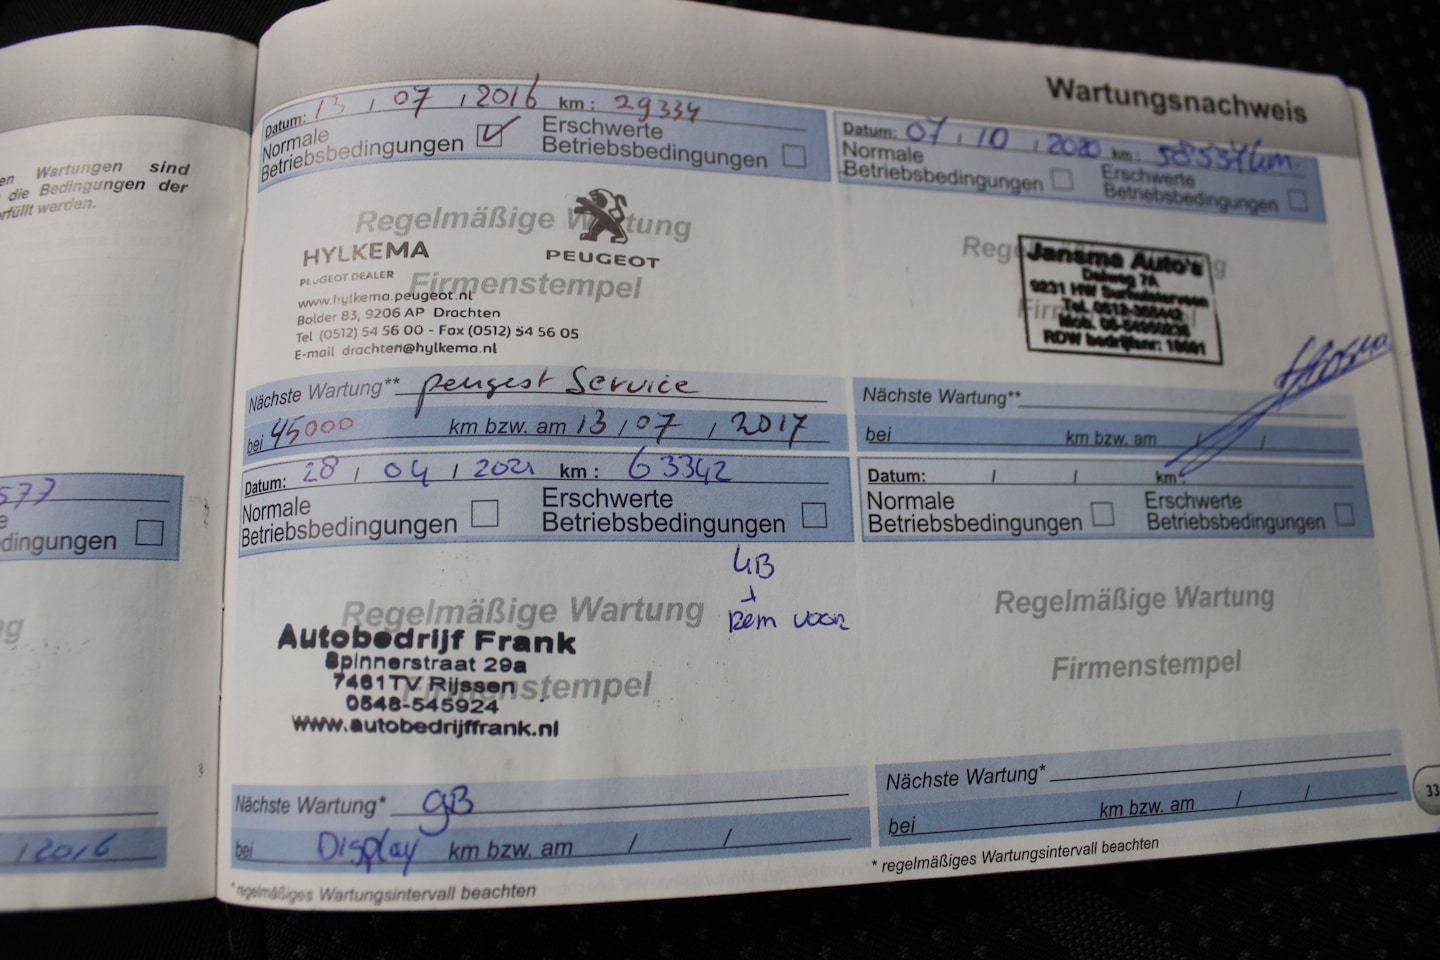 en Wartungen sind
die Bedingungen der
rfüllt werden.
577
e
dingungen
ng
/ 2016
Wartungsnachweis
Datum: 13 / 07 / 2016 km : 29334
Normale
Betriebsbedingungen
Erschwerte
Betriebsbedingungen
Regelmäßige Wartung
HYLKEMA
PEUGEOT DEALER
PEUGEOT
Firmenstempel
www.hylkema.peugeot.nl
Bolder 83, 9206 AP Drachten
Tel (0512) 54 56 00 - Fax (0512) 54 56 05
E-mail drachten@hylkema.nl
Nächste Wartung** peugeot Service
bei 45000 km bzw. am 13 / 07 / 2017
Datum: 07 / 10 / 2020 km : 58537 km.
Normale
Betriebsbedingungen
Erschwerte
Betriebsbedingungen
Jansma Auto's
Dalweg 7A
9231 HW Surhuisterveen
Tel. 0512-
Mob. 06-
RDW bedrijfsnr:
Nächste Wartung**
bei km bzw. am / /
Datum: 28 / 04 / 2021 km : 63342
Normale
Betriebsbedingungen
Erschwerte
Betriebsbedingungen
GB
+
Rem voor
Regelmäßige Wartung
Autobedrijf Frank
Spinnerstraat 29a
7461TV Rijssen
Firmenstempel
0548-545924
www.autobedrijffrank.nl
Nächste Wartung* gB
bei Display km bzw. am / /
* regelmäßiges Wartungsintervall beachten
Datum: / / km :
Normale
Betriebsbedingungen
Erschwerte
Betriebsbedingungen
Regelmäßige Wartung
Firmenstempel
Nächste Wartung*
bei km bzw. am / /
* regelmäßiges Wartungsintervall beachten
33